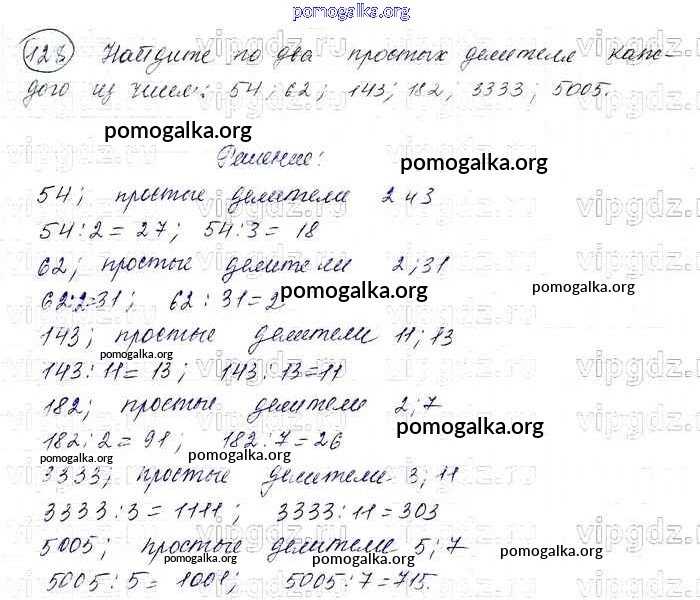 pomogalka.org
128 Найдите по два простых делителя каж-
дого из чисел: 54; 62; 143; 182; 3333; 5005.
pomogalka.org
Решение:
pomogalka.org
54; простые делители 2 и 3
54:2=27; 54:3=18
62; простые делители 2; 31
62:2=31; 62:31=2
pomogalka.org
pomogalka.org
143; простые делители 11; 13
pomogalka.org
143:11=13; 143:13=11
182; простые делители 2; 7
pomogalka.org
182:2=91; 182:7=26
pomogalka.org
pomogalka.org
3333; простые делители 3; 11
3333:3=1111; 3333:11=303
5005; простые делители 5; 7
pomogalka.org
pomogalka.org
5005:5=1001; 5005:7=715.
vipgdz.ru